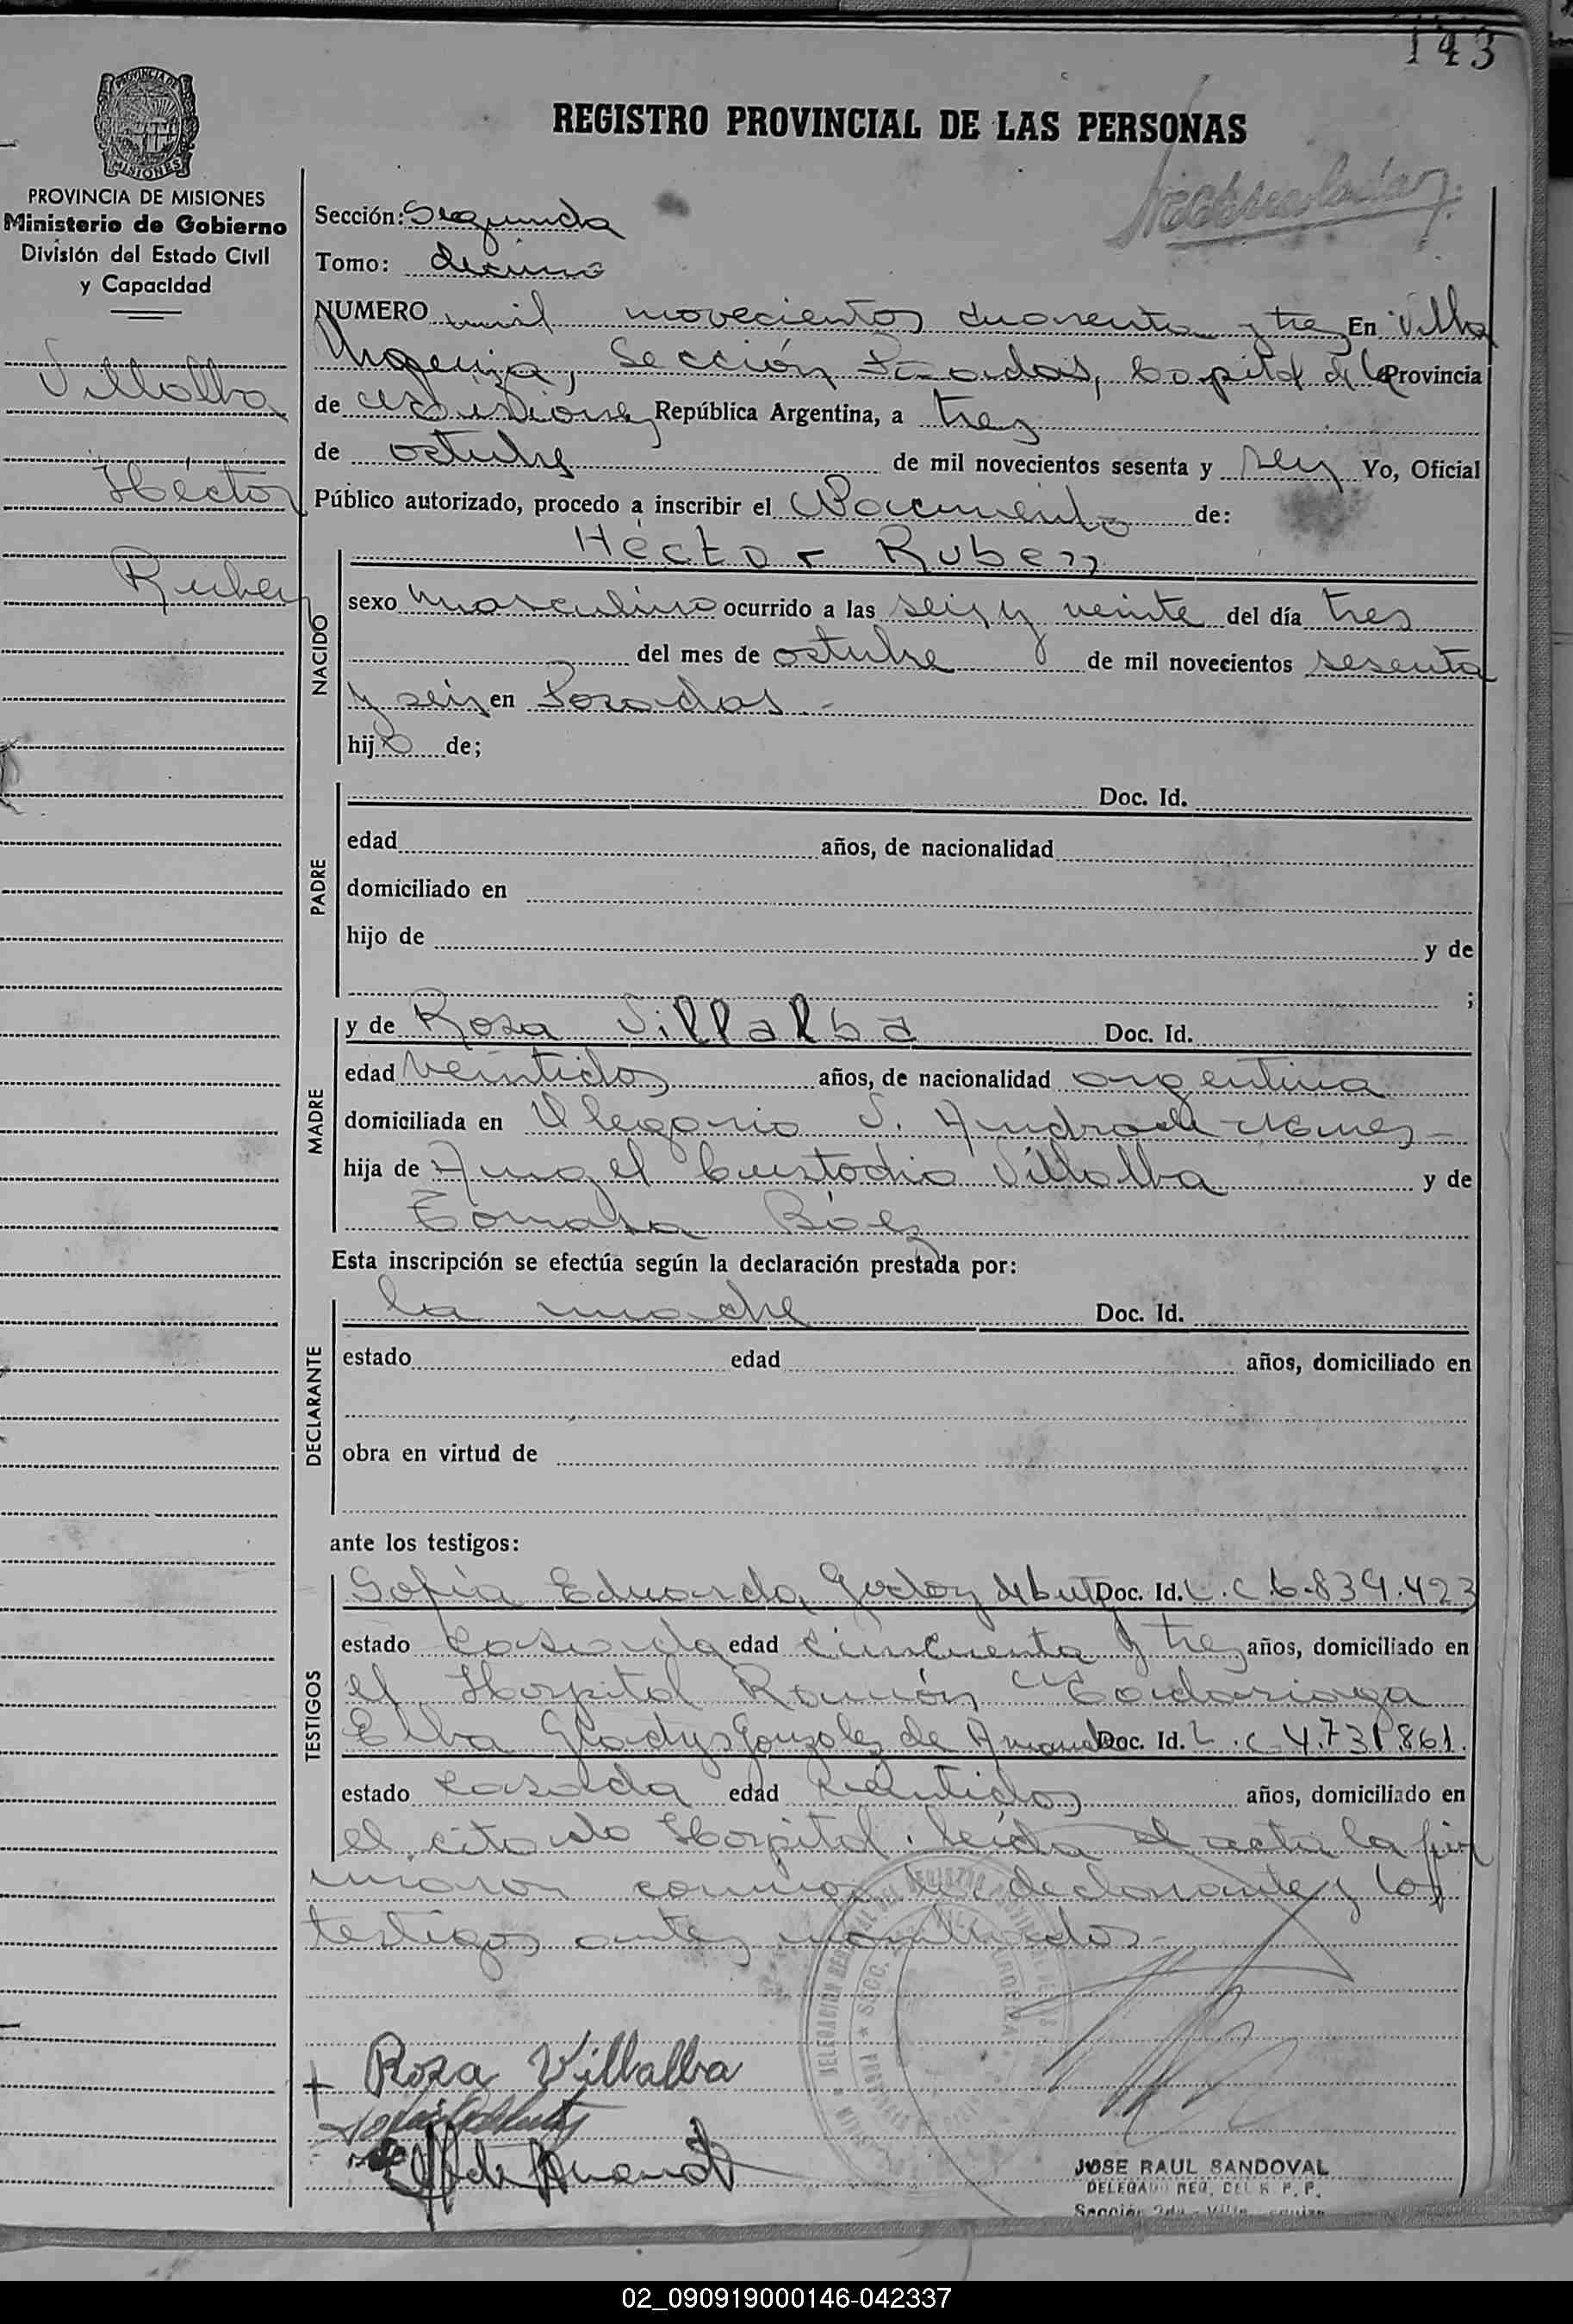 143
PROVINCIA DE
MISIONES
PROVINCIA DE MISIONES
Ministerio de Gobierno
División del Estado Civil
y Capacidad
Villalba
Héctor
Ruben
REGISTRO PROVINCIAL DE LAS PERSONAS
Sección: Segunda
Tomo: decimo
NUMERO mil novecientos cuarenta y tres En Villa
Urquiza, Sección Posadas, Capital de la Provincia
de Misiones República Argentina, a tres
de octubre de mil novecientos sesenta y seis Yo, Oficial
Público autorizado, procedo a inscribir el Nacimiento de:
Héctor Ruben
NACIDO
sexo masculino ocurrido a las seis y veinte del día tres
del mes de octubre de mil novecientos sesenta
y seis en Posadas.-
hijo de;
PADRE
Doc. Id.
edad años, de nacionalidad
domiciliado en
hijo de y de
;
MADRE
y de Rosa Villalba Doc. Id.
edad veintidos años, de nacionalidad argentina
domiciliada en Olegario V. Andrade Mnes-
hija de Angel Custodio Villalba y de
Tomasa Báez
Esta inscripción se efectúa según la declaración prestada por:
DECLARANTE
la madre Doc. Id.
estado edad años, domiciliado en
obra en virtud de
ante los testigos:
TESTIGOS
Sofía Eduarda Godoy de Doc. Id. L.C 6.839.423
estado casada edad cincuenta y tres años, domiciliado en
el Hospital Ramón Madariaga
Elba Gladys Gonzalez de Doc. Id. L.C 4.731.861.
estado casada edad veintidos años, domiciliado en
el citado Hospital. leída el acta la fir
maron conmigo la declarante y los
testigos antes nombrados-
Rosa Villalba
JOSE RAUL SANDOVAL
DELEGADO REG. DEL R. P. P.
Sección 2da - Villa
02_090919000146-042337